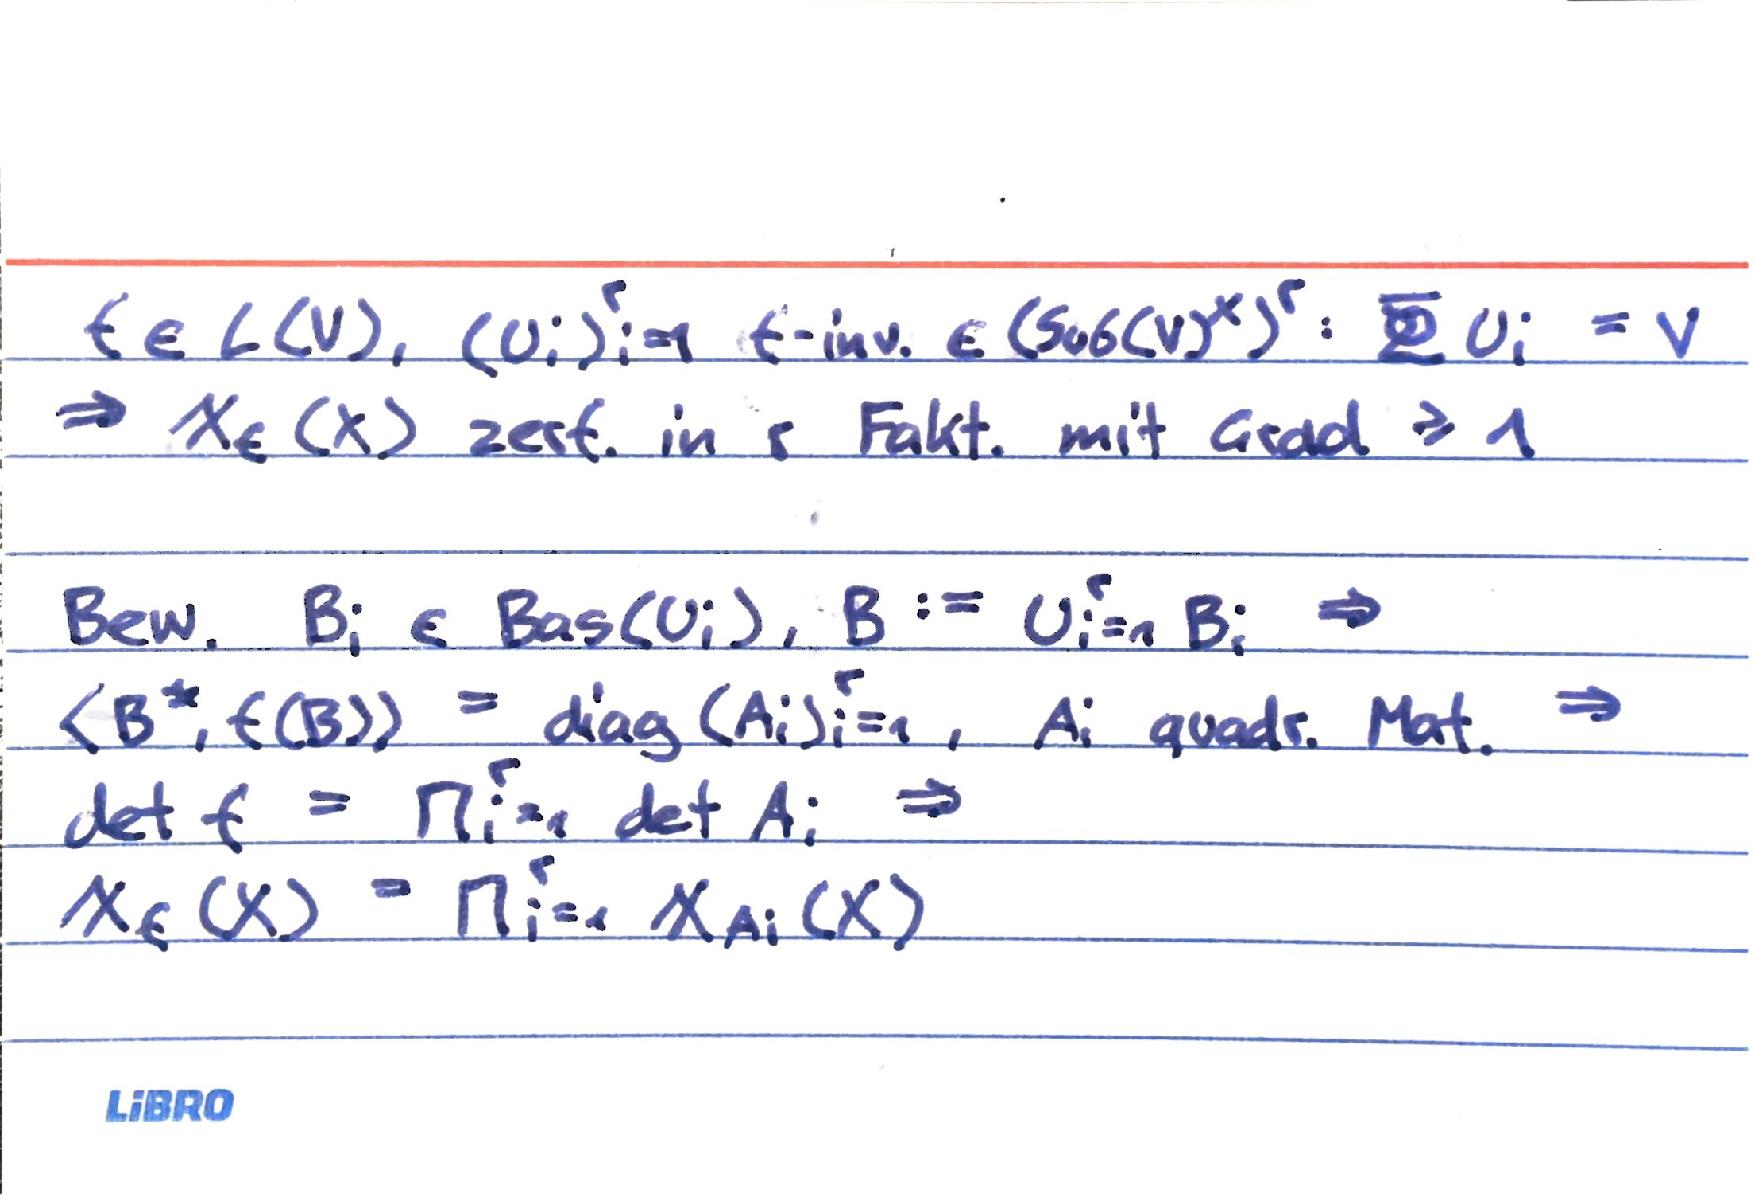 f ∈ L(V), (Uᵢ)ʳᵢ₌₁ f-inv. ∈ (Sub(V)ˣ)ʳ: Uᵢ = V
⇒ χ_f (X) zerf. in r Fakt. mit Grad ≥ 1
Bew. Bᵢ ∈ Bas(Uᵢ), B := ∪ʳᵢ₌₁ Bᵢ ⇒
⟨B*, f(B)⟩ = diag (Aᵢ)ʳᵢ₌₁, Aᵢ quadr. Mat. ⇒
det f = Πʳᵢ₌₁ det Aᵢ ⇒
χ_f (X) = Πʳᵢ₌₁ χ_Aᵢ (X)
LiBRO